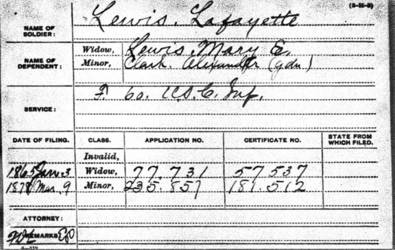 (3-50-8)
NAME OF SOLDIER: Lewis, Lafayette
NAME OF DEPENDENT: Widow, Lewis, Mary E.
Minor, Clark, Alexander (gdn)
SERVICE: F. 60. U.S.C. Inf.
DATE OF FILING. CLASS. APPLICATION NO. CERTIFICATE NO. STATE FROM WHICH FILED.
Invalid,
1865 Jan. 3 Widow, 77.731 57.537
1878 Mar. 9 Minor, 235.857 181.512
ATTORNEY:
REMARKS: